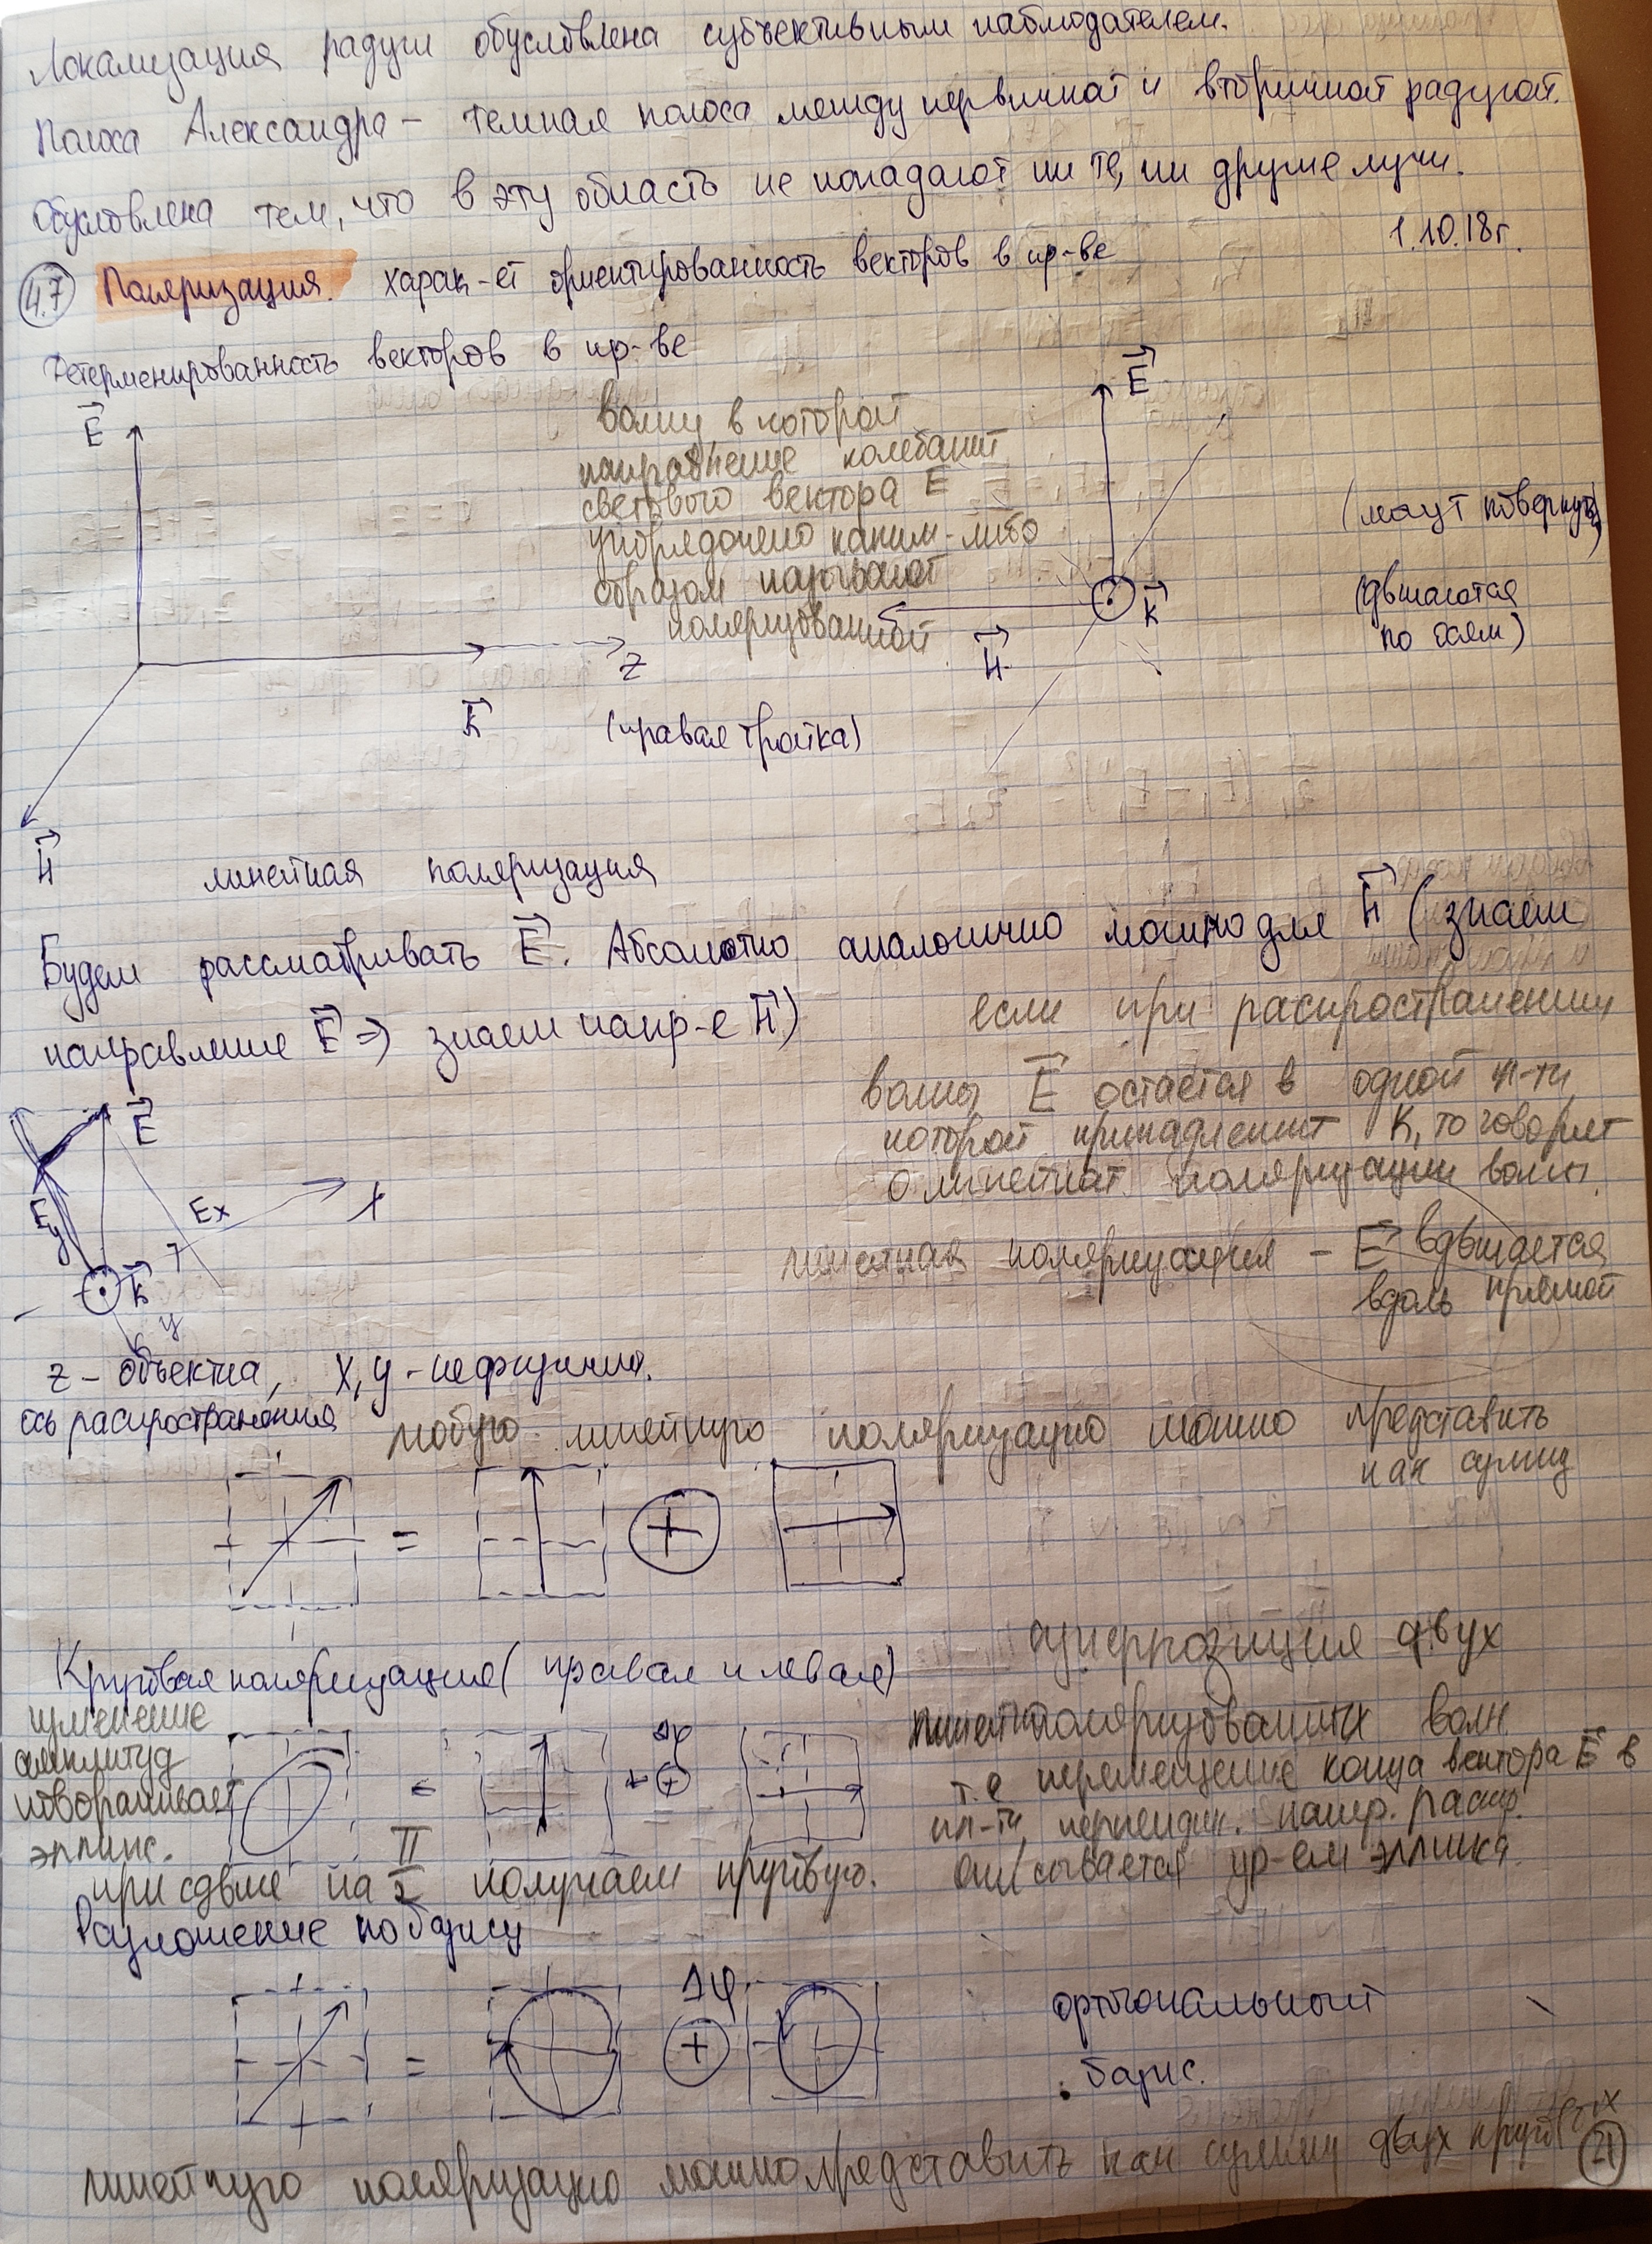 Локализация радуги обусловлена субъективным наблюдателем.
Полоса Александра – темная полоса между первичной и вторичной радугой.
Обусловлена тем, что в эту область не попадают ни те, ни другие лучи.
1.10.18г.
4.7 Поляризация. харак-ет ориентированность векторов в пр-ве
Детерменированность векторов в пр-ве
E
волну, в которой
направление колебаний
светового вектора E
упорядочено каким-либо
образом называют
поляризованной
E
(могут повернуть)
K
(двигаются
по осям)
H
Z
K
(правая тройка)
H
линейная поляризация
Будем рассматривать E. Абсолютно аналогично можно для H (знаем
направление E ⇒ знаем напр-е H)
если при распространении
волны E остаётся в одной пл-ти
которой принадлежит K, то говорят
о линейной поляризации волны.
линейная поляризация – E двигается
вдоль прямой
E
Ex
X
Ey
K
y
z – объектна, x, y – нефизичны.
ось распространения
любую линейную поляризацию можно представить
как сумму
= +
Круговая поляризация (правая и левая)
суперпозиция двух
линейнополяризованных волн
т.е перемещение конца вектора E в
пл-ти перпендик. напр. распр.
описывается ур-ем эллипса
изменение
амплитуд
поворачивает
эллипс.
= Δφ +
при сдвиге на π/2 получаем круговую.
Разложение по базису
= Δφ +
ортогональный
базис.
линейную поляризацию можно представить как сумму двух круговых
21